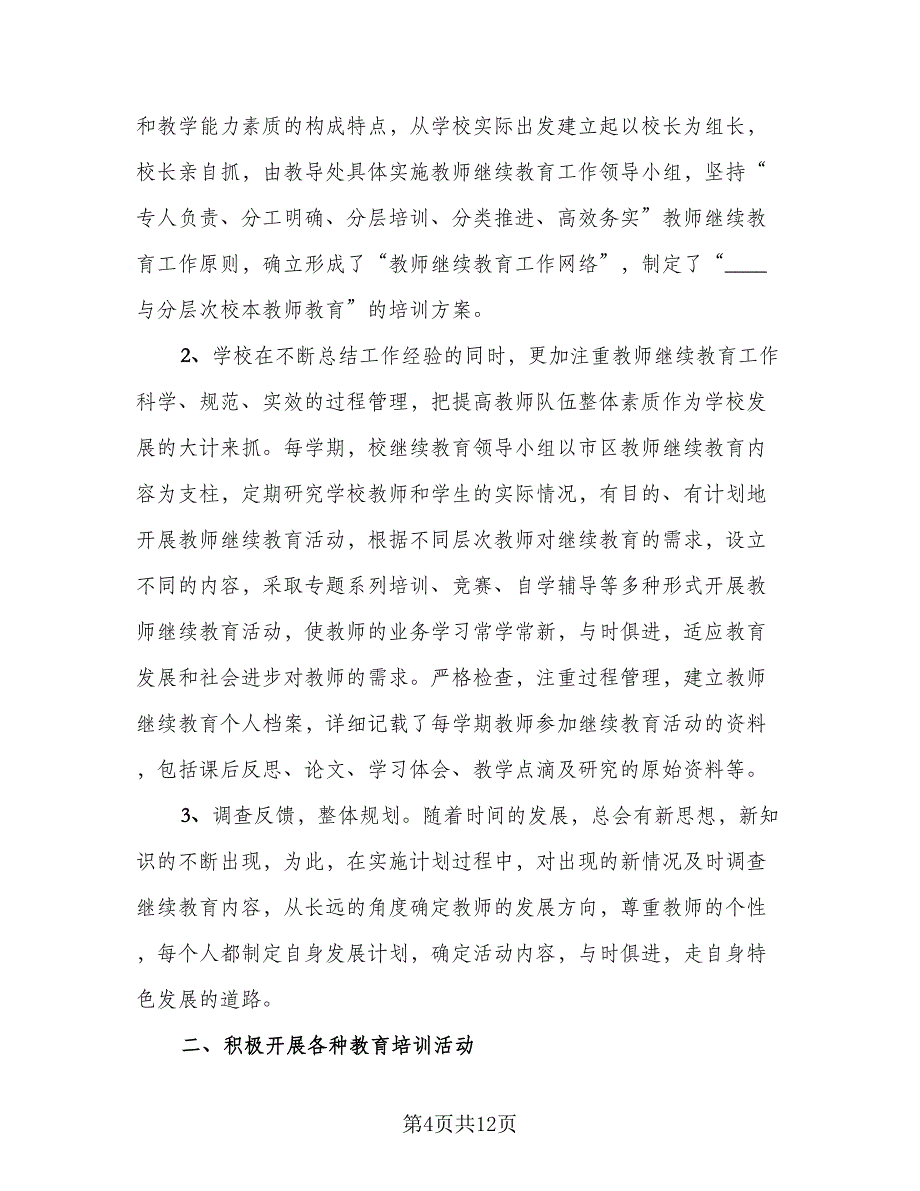 和教学能力素质的构成特点，从学校实际出发建立起以校长为组长，
校长亲自抓，由教导处具体实施教师继续教育工作领导小组，坚持“
专人负责、分工明确、分层培训、分类推进、高效务实”教师继续教
育工作原则，确立形成了“教师继续教育工作网络”，制定了“____
与分层次校本教师教育”的培训方案。
2、学校在不断总结工作经验的同时，更加注重教师继续教育工作
科学、规范、实效的过程管理，把提高教师队伍整体素质作为学校发
展的大计来抓。每学期，校继续教育领导小组以市区教师继续教育内
容为支柱，定期研究学校教师和学生的实际情况，有目的、有计划地
开展教师继续教育活动，根据不同层次教师对继续教育的需求，设立
不同的内容，采取专题系列培训、竞赛、自学辅导等多种形式开展教
师继续教育活动，使教师的业务学习常学常新，与时俱进，适应教育
发展和社会进步对教师的需求。严格检查，注重过程管理，建立教师
继续教育个人档案，详细记载了每学期教师参加继续教育活动的资料
，包括课后反思、论文、学习体会、教学点滴及研究的原始资料等。
3、调查反馈，整体规划。随着时间的发展，总会有新思想，新知
识的不断出现，为此，在实施计划过程中，对出现的新情况及时调查
继续教育内容，从长远的角度确定教师的发展方向，尊重教师的个性
，每个人都制定自身发展计划，确定活动内容，与时俱进，走自身特
色发展的道路。
二、积极开展各种教育培训活动
第4页共12页